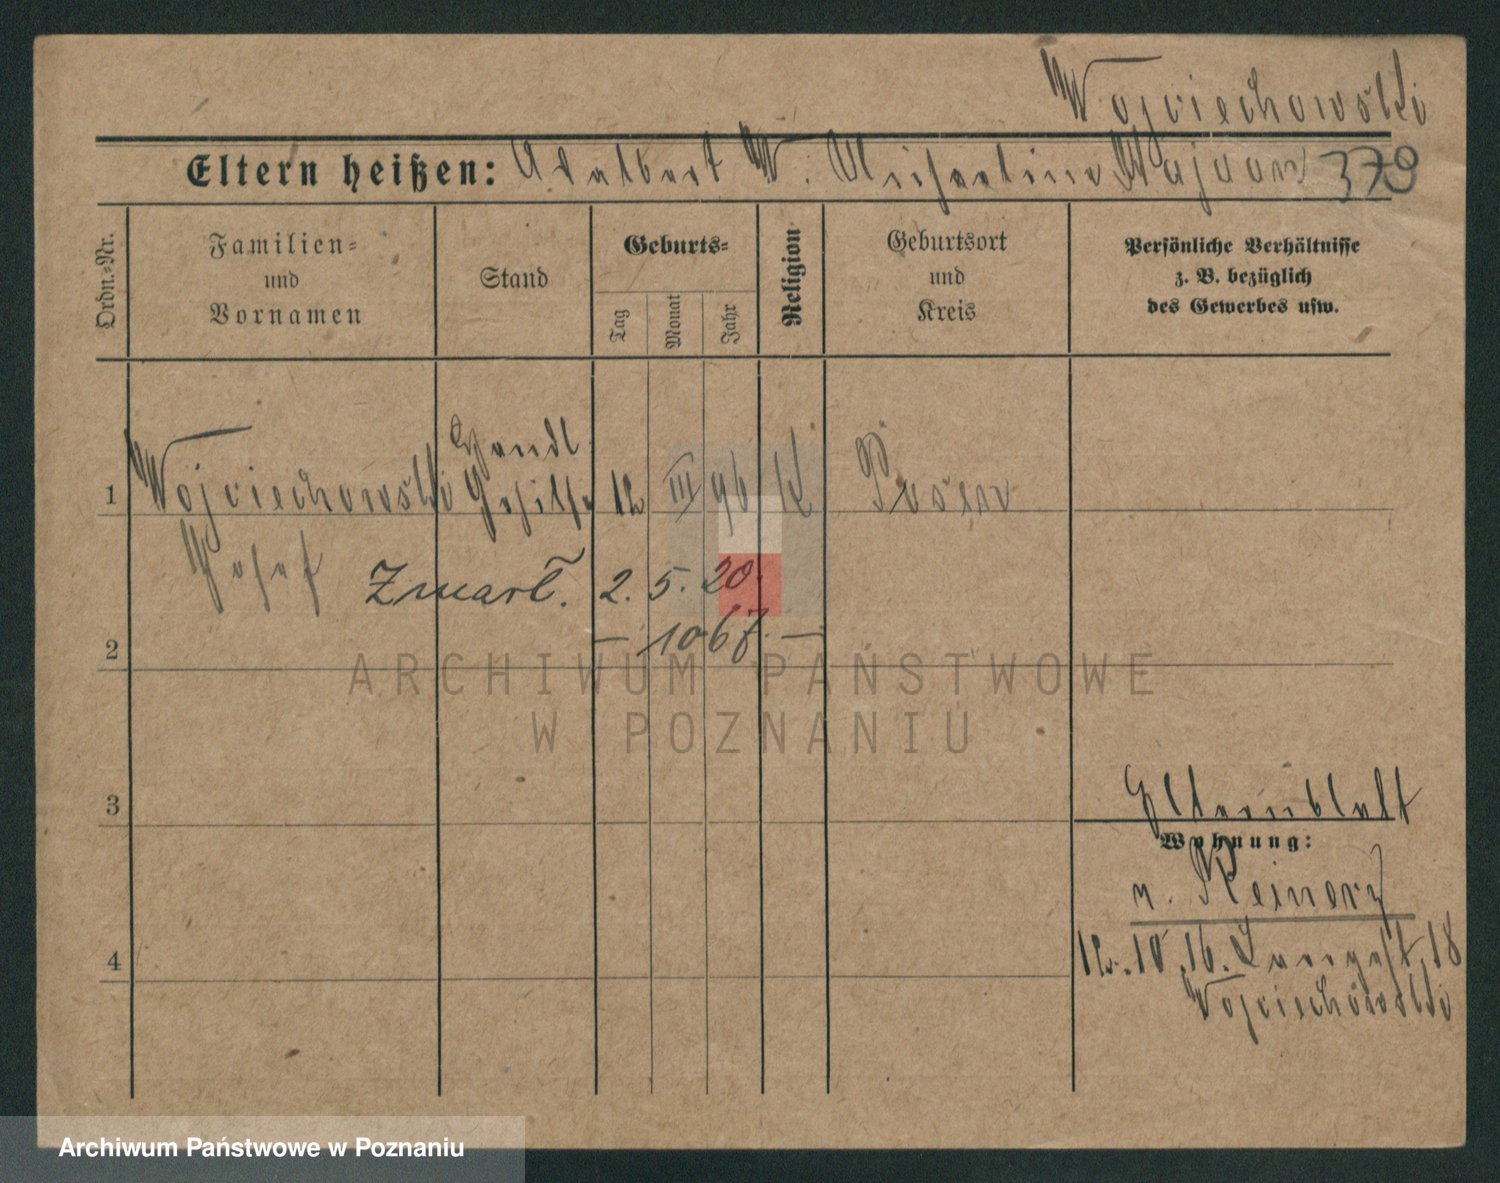 Wojciechowski
Eltern heißen: Adalbert W. Michaelina 379
Ordn.-Nr.
Familien-
und
Vornamen
Stand
Geburts-
Tag
Monat
Jahr
Religion
Geburtsort
und
Kreis
Persönliche Verhältnisse
z. B. bezüglich
des Gewerbes usw.
Handl
1 Wojciechowski Gehilfe 12 III 96 K Posen
Josef
Zmarł. 2. 5. 20.
2 — 1067. —
ARCHIWUM PAŃSTWOWE
W POZNANIU
3
Elternblatt
Wohnung:
n. Reinerz
4
12. 10. 16. Langest. 18
Wojciechowski
Archiwum Państwowe w Poznaniu